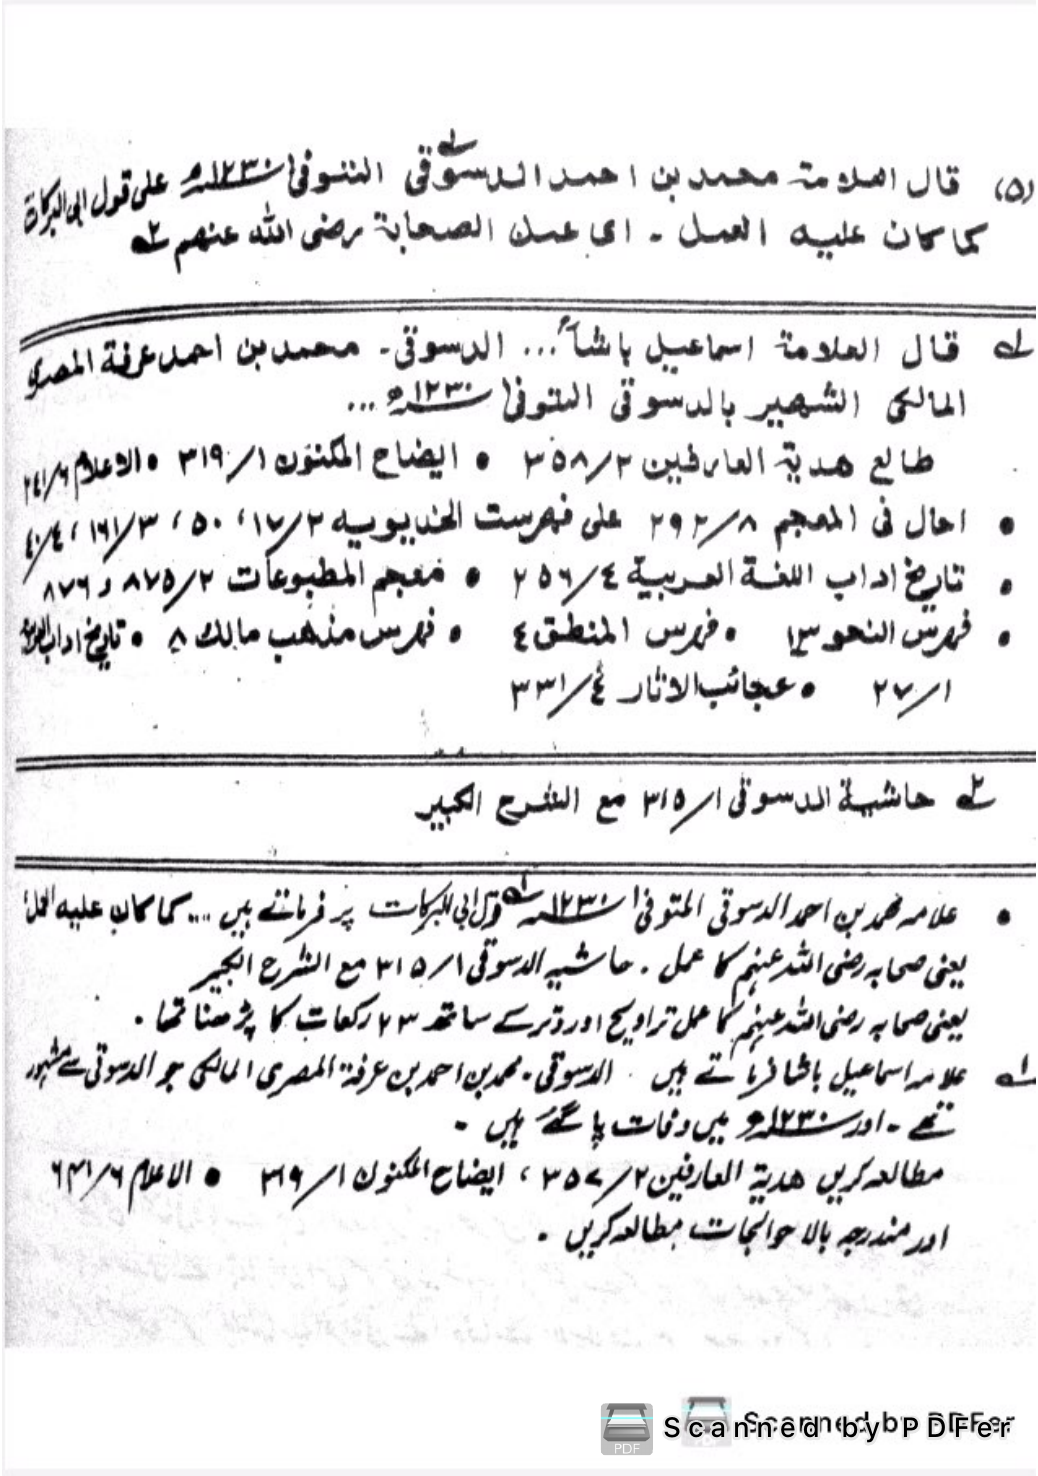 (۵) قال العلامة محمد بن احمد الدسوقی المتوفیٰ ۱۲۳۰ھ علی قول ابی البرکات
کما کان علیه العمل ۔ ای عمل الصحابة رضی الله عنهم ۲ے
۱ے قال العلامة اسماعیل باشاً ... الدسوقی ۔ محمد بن احمد عرفة المصری
المالکی الشهیر بالدسوقی المتوفیٰ ۱۲۳۰ھ ...
طالع هدیة العارفین ۲/۳۵۸ • ایضاح المکنون ۱/۳۱۹ • الاعلام ۶/۲۴۱
• احال فی المعجم ۸/۲۹۲ علی فهرست الخدیویه ۲/۱۷، ۵۰، ۳/۱۶۱، ۴/۴۰
• تاریخ اداب اللغة العربیة ۴/۲۵۶ • معجم المطبوعات ۲/۸۷۵ و ۸۷۶
• فهرس النحو ۱۳ • فهرس المنطق ۴ • فهرس مذهب مالک ۸ • تاریخ اداب
۱/۲۷ • عجائب الاثار ۴/۳۳۱
۲ے حاشیة الدسوقی ۱/۳۱۵ مع الشرح الکبیر
• علامہ محمد بن احمد الدسوقی المتوفیٰ ۱۲۳۰ھ ۱ے قول ابی البرکات پر فرماتے ہیں ... کما کان علیه العمل
یعنی صحابہ رضی اللہ عنہم کا عمل ۔ حاشیہ الدسوقی ۱/۳۱۵ مع الشرح الکبیر
یعنی صحابہ رضی اللہ عنہم کا عمل تراویح اور وتر کے ساتھ ۲۳ رکعات کا پڑھنا تھا ۔
۱ے علامہ اسماعیل باشا فرماتے ہیں ۔ الدسوقی ۔ محمد بن احمد بن عرفة المصری المالکی جو الدسوقی سے مشہور
تھے ۔ اور ۱۲۳۰ھ میں وفات پا گئے ہیں ۔
مطالعہ کریں هدیة العارفین ۲/۳۵۷ ، ایضاح المکنون ۱/۳۶۹ • الاعلام ۶/۶۴۱
اور مندرجہ بالا حوالجات مطالعہ کریں ۔
Scanned by PDFer
Scanned by PDFer